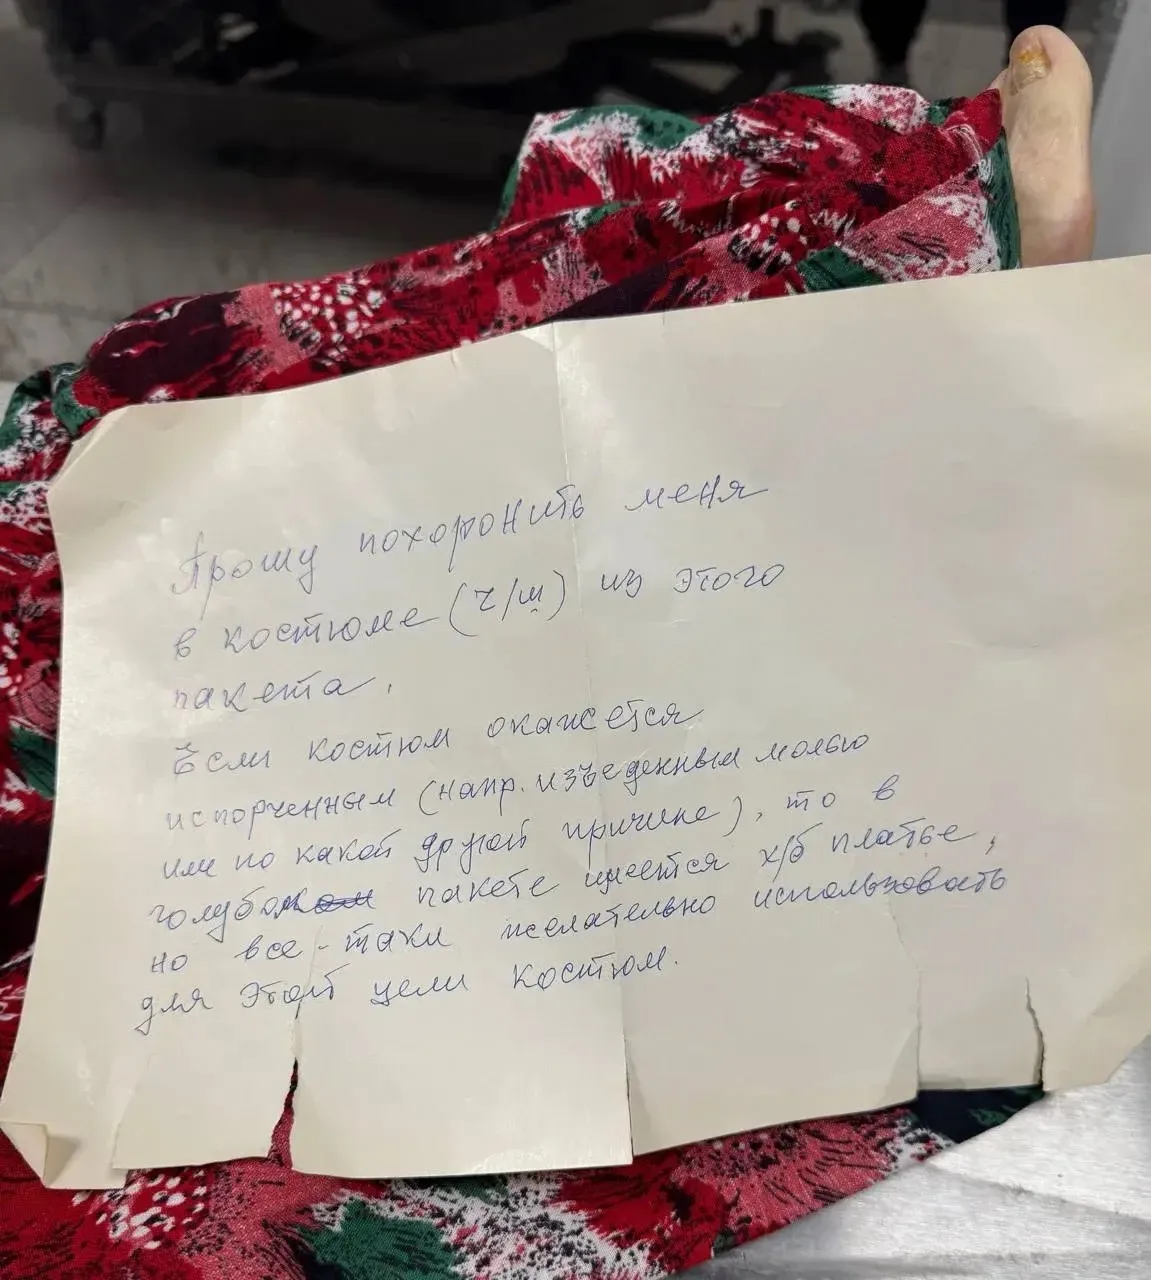 Прошу похоронить меня
в костюме (ч/ш) из этого
пакета.
Если костюм окажется
испорченным (напр. изъеденным молью
или по какой другой причине), то в
голубом пакете имеется х/б платье,
но все-таки желательно использовать
для этой цели костюм.